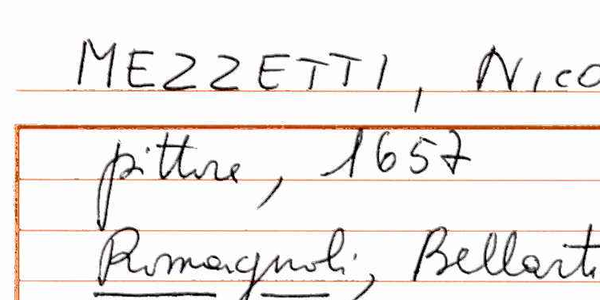 MEZZETTI, Nico
pittore, 1657
Romagnoli, Bellarti